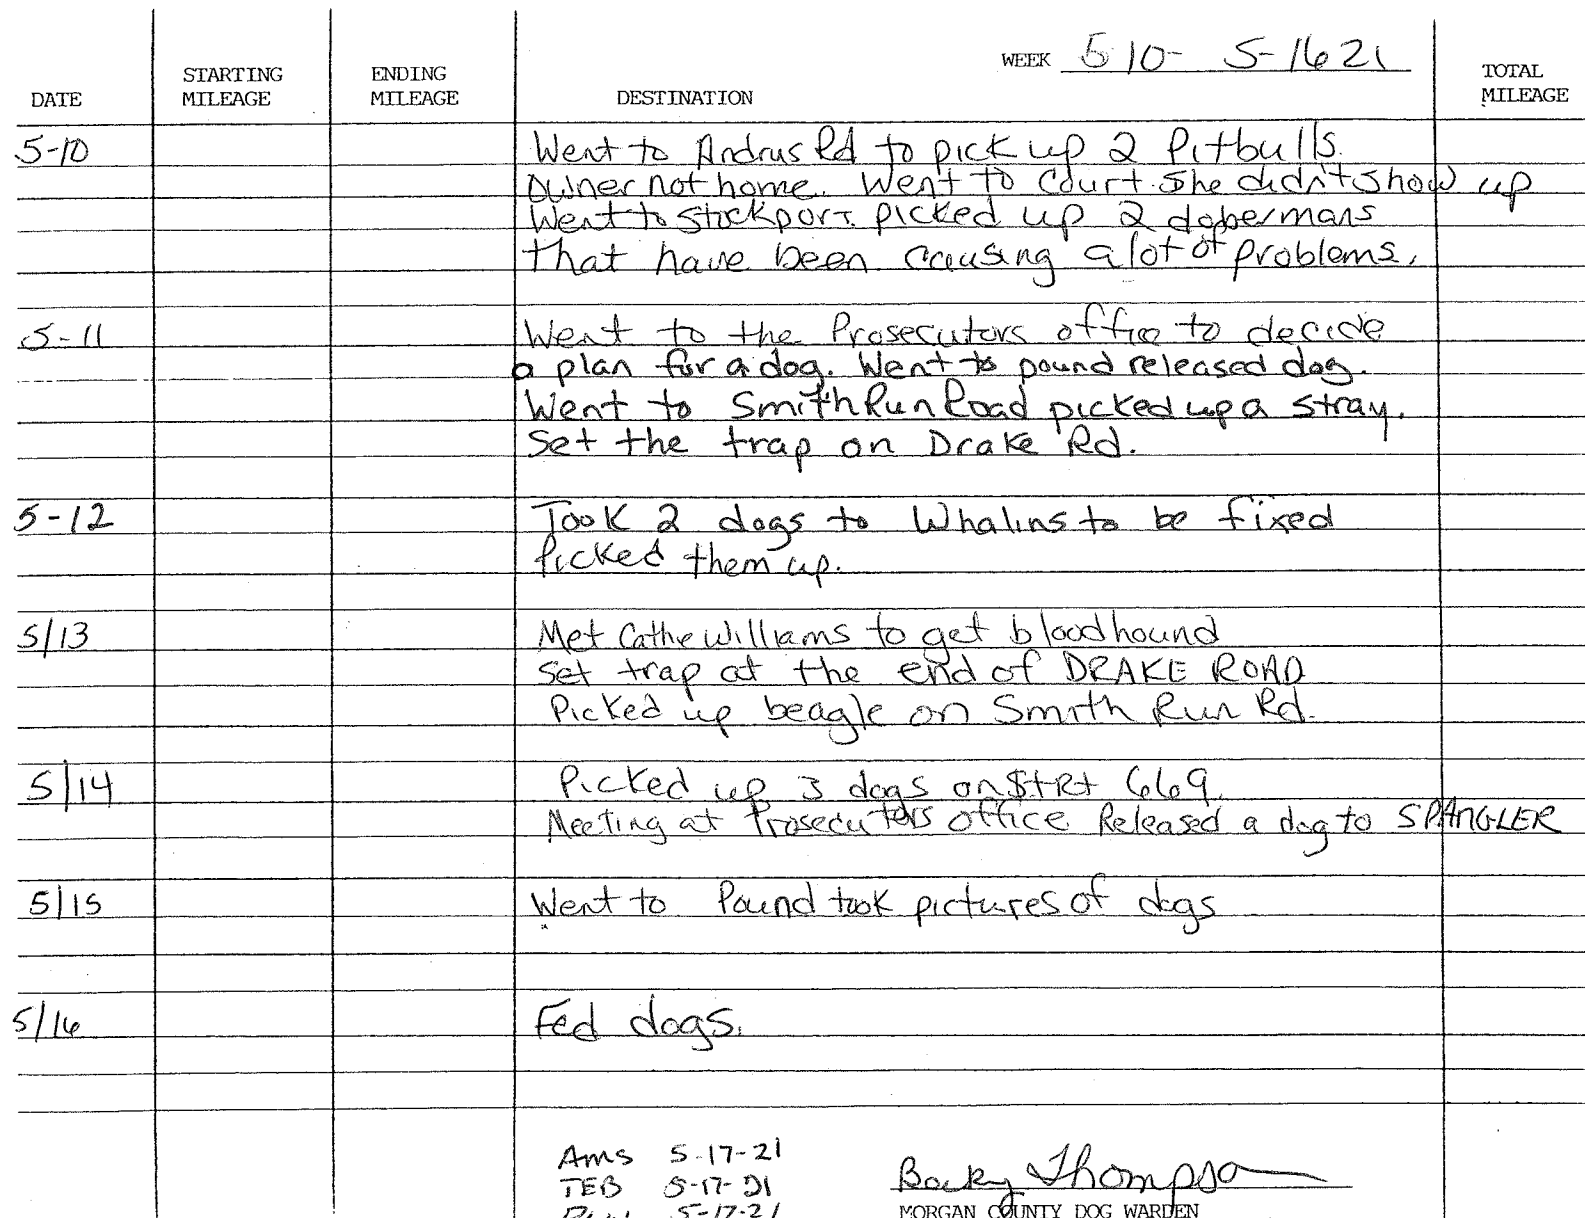 WEEK 5 10- 5-16 21
DATE STARTING MILEAGE ENDING MILEAGE DESTINATION TOTAL MILEAGE
5-10 Went to Andrus Rd to pick up 2 Pitbulls.
Owner not home. Went to Court. She didn't show up
Went to Stockport. picked up 2 dobermans
that have been causing a lot of problems.
5-11 Went to the Prosecutors office to decide
a plan for a dog. Went to pound released dog.
Went to Smith Run Road picked up a stray.
Set the trap on Drake Rd.
5-12 Took 2 dogs to Whalins to be fixed
Picked them up.
5/13 Met Cathe Williams to get bloodhound
Set trap at the end of DRAKE ROAD
Picked up beagle on Smith Run Rd.
5/14 Picked up 3 dogs on St Rt 669.
Meeting at Prosecutors office Released a dog to SPANGLER
5/15 Went to Pound took pictures of dogs
5/16 Fed dogs.
Ams 5-17-21
TEB 5-17-21
5-17-21
Becky Thompson
MORGAN COUNTY DOG WARDEN